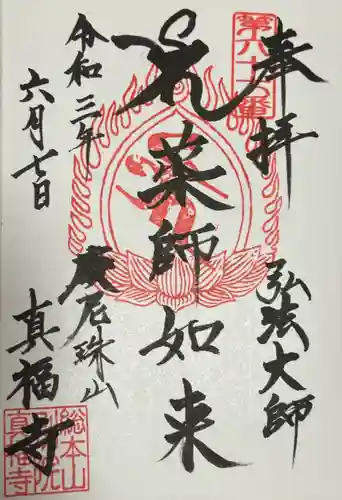 奉拝
第六十六番
弘法大師
薬師如来
令和三年
六月七日
摩尼珠山
真福寺
総本山
真福寺